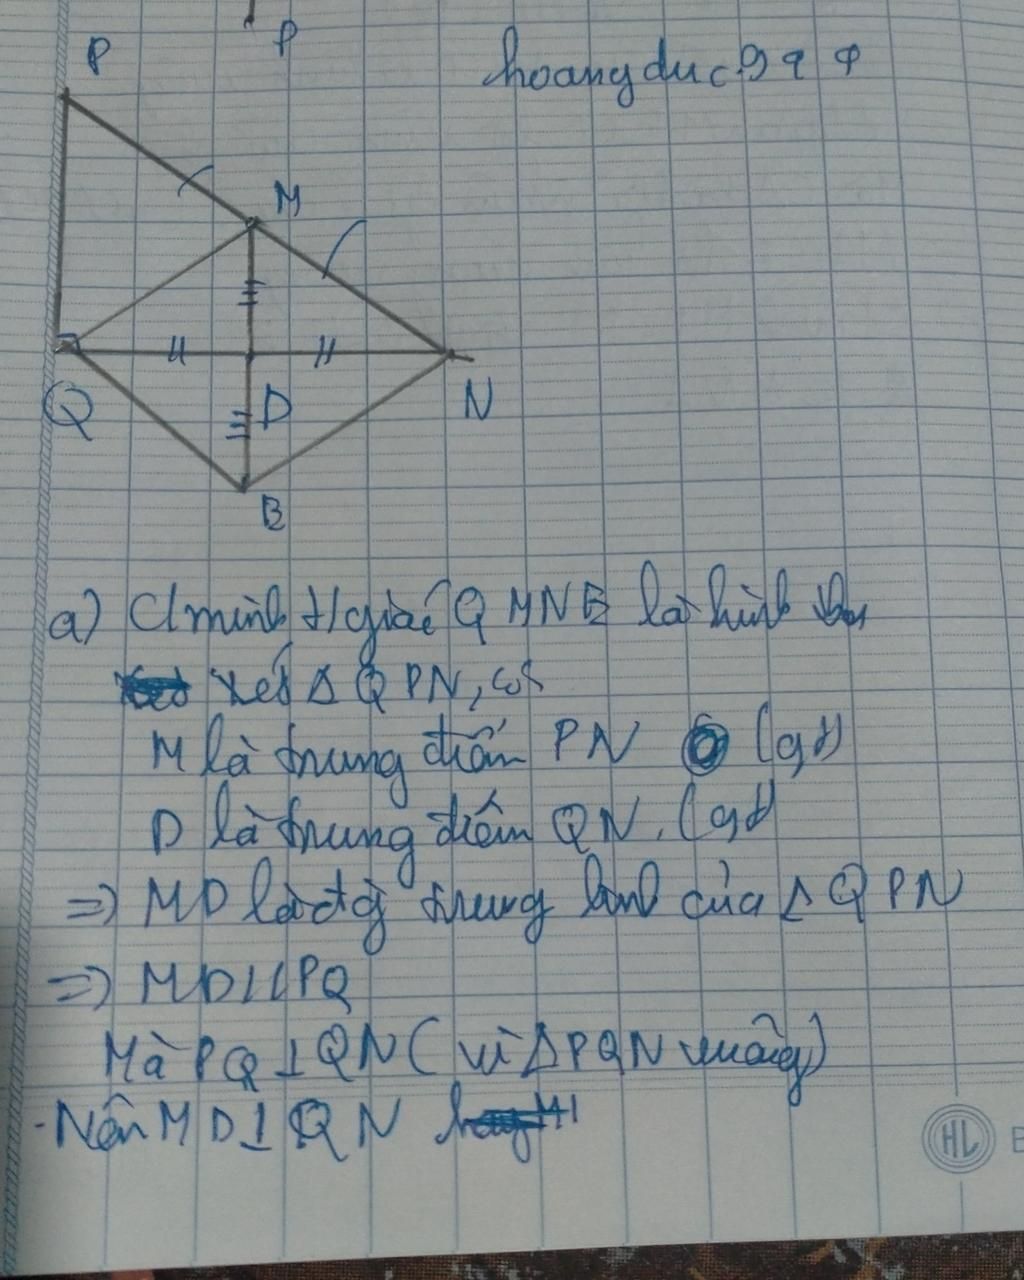 P
P
hoangduc999
M
D
Q
N
B
a) C/minh t/giác QMNB là hình
Xét Δ QPN, có
M là trung điểm PN (gt)
D là trung điểm QN. (gt)
=> MD là đg trung bình của Δ QPN
=> MD//PQ
Mà PQ⊥QN (vì ΔPQN vuông)
Nên MD⊥QN
HL